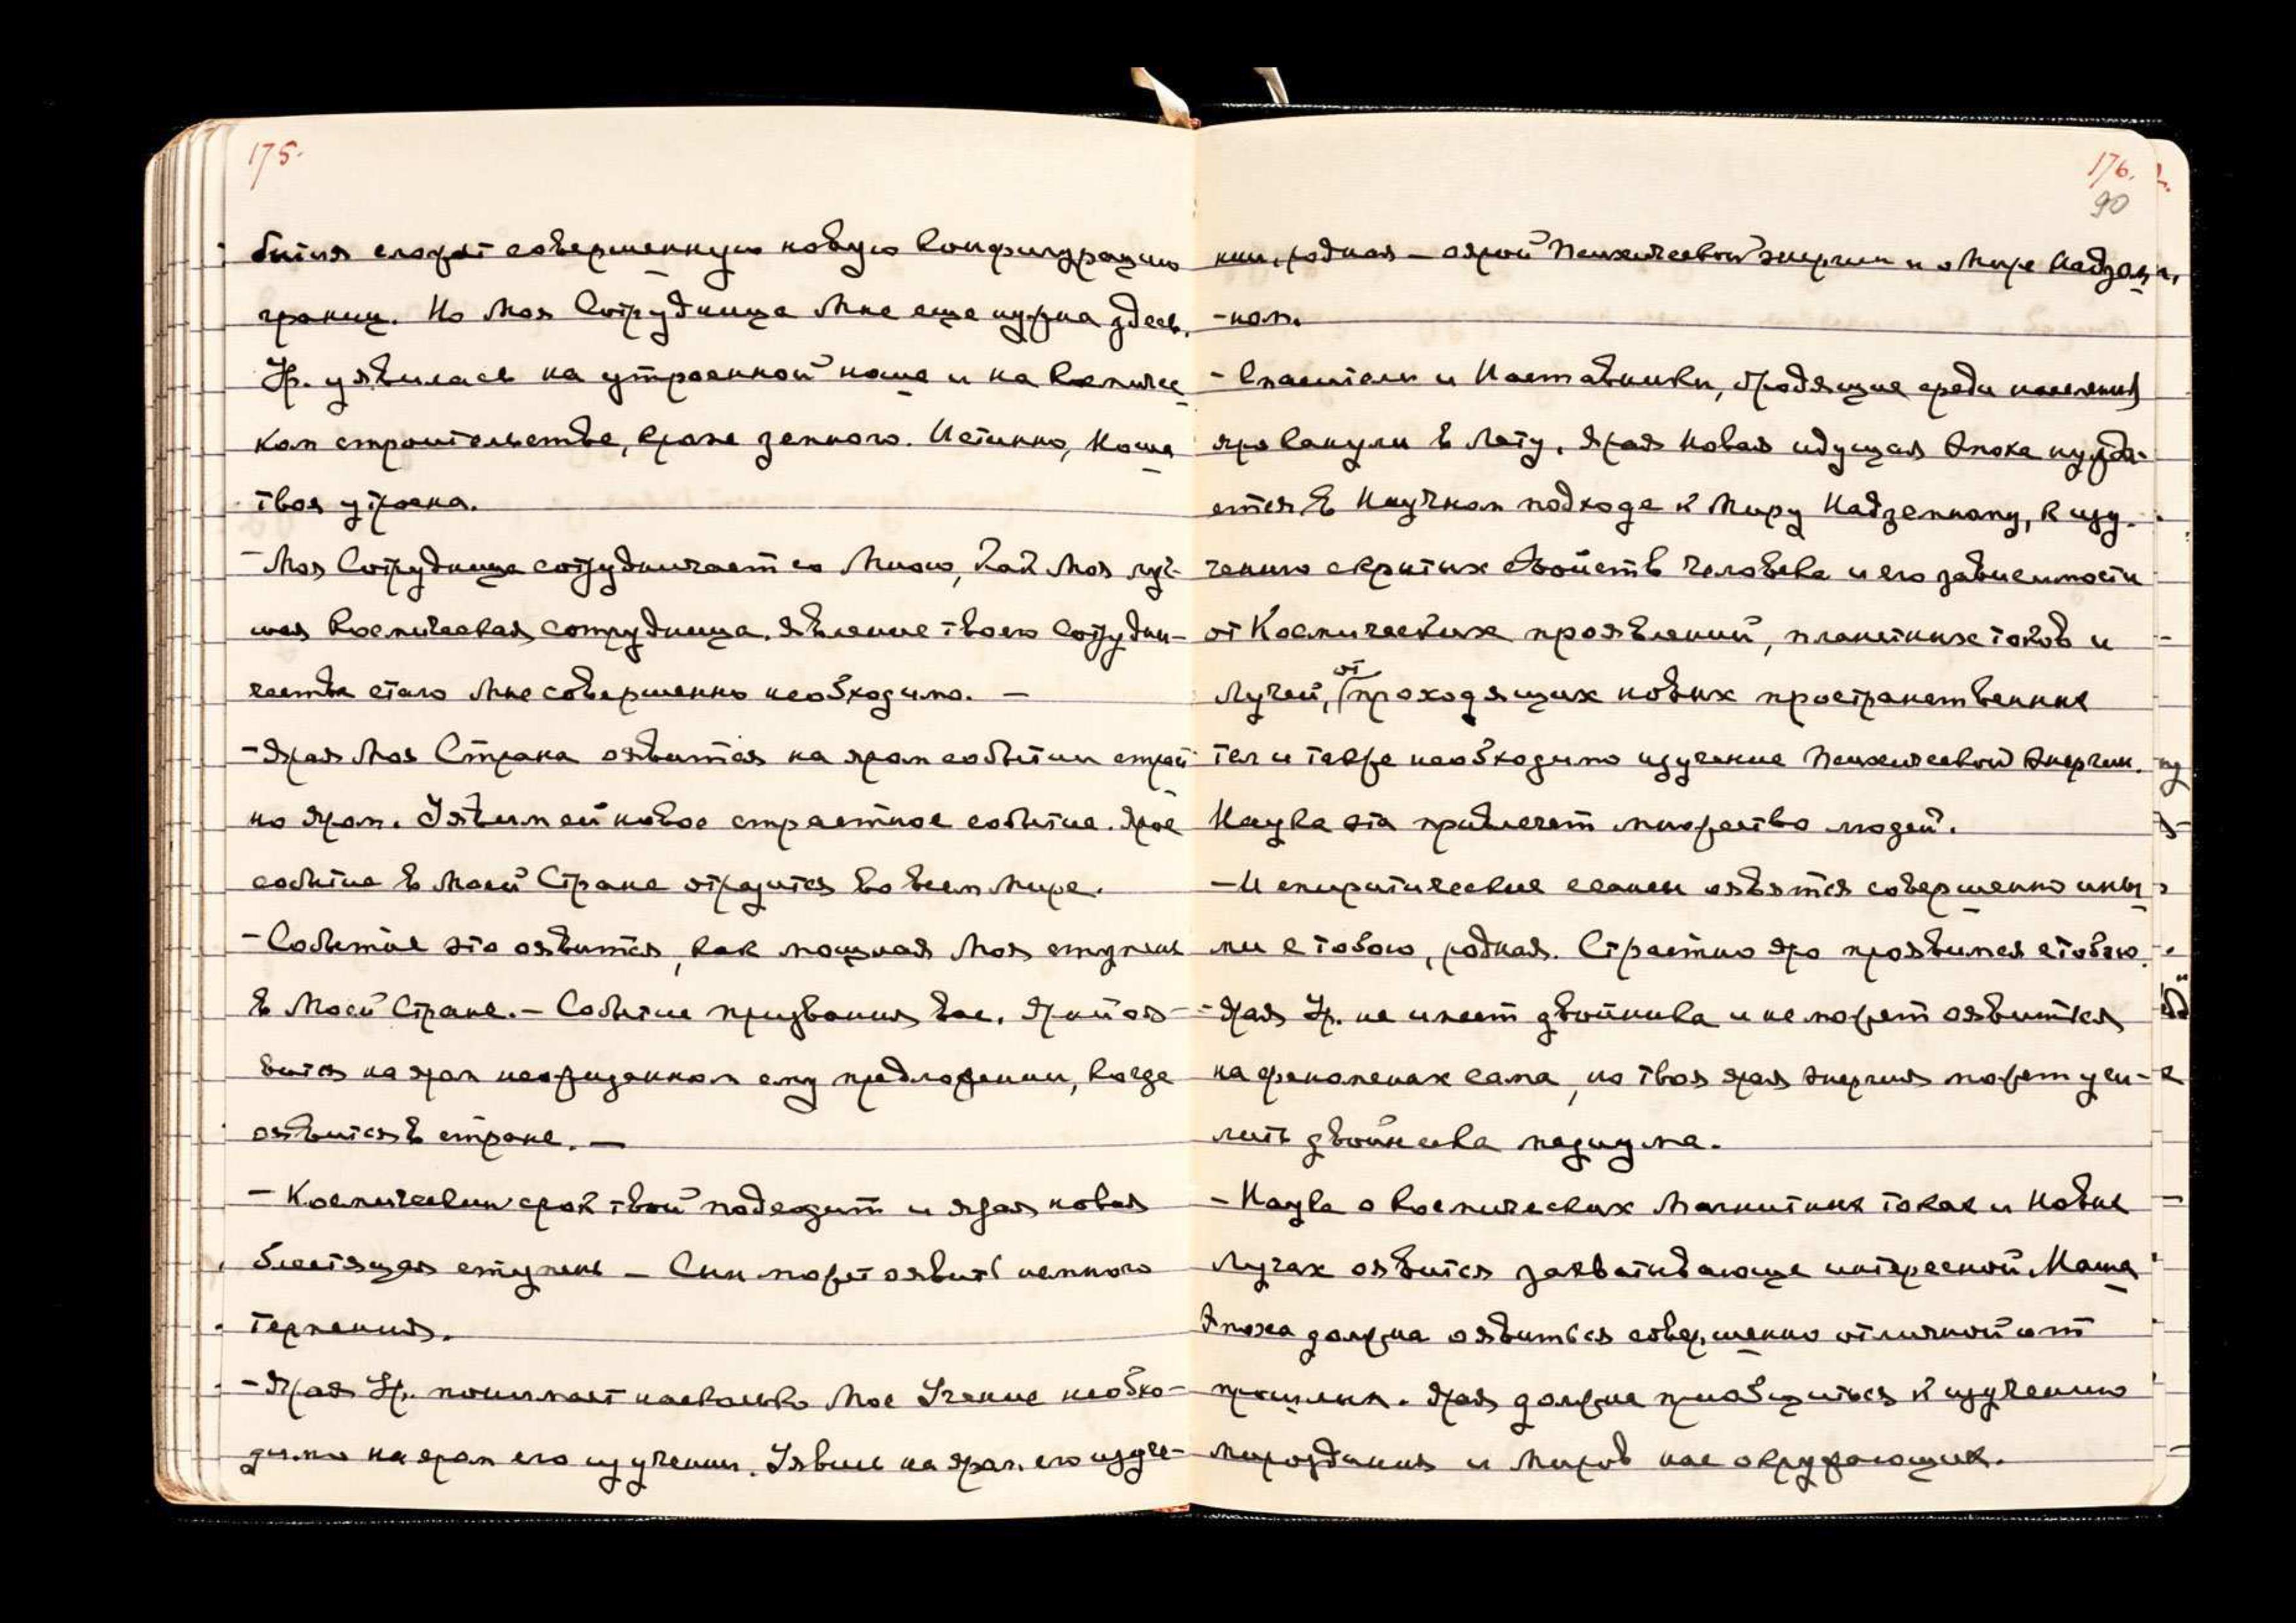 175.
бытия сложат совершенную новую конфигурацию
границ. Но Моя Сотрудница Мне еще нужна здесь.
Ур. уявилась на утроенной ноше и на Космичес
ком строительстве, кроме земного. Истинно, Ноша
твоя утроена.
- Моя Сотрудница сотрудничает со Мною, как Моя луч-
шая Космическая сотрудница. Явление твоего сотрудни-
чества стало Мне совершенно необходимо. —
- Ярая Моя Страна оявится на яром событии
но яром. Уявим ей новое страстное событие. Ярое
событие в Моей Стране отразится во всем мире.
- Событие это оявится, как мощная Моя ступень
в Моей Стране. - Событие призвания вас. Ярый оя-
вится на яром неожиданном ему предложении, когда
оявится в стране. —
- Космический срок твой подходит и ярая новая
блестящая ступень - Сын может оявить немного
терпения.
- Ярая Ур. понимает насколько Мое Учение необхо-
димо на яром его изучении. Уявись на яром его изуче-
176.
90
нии, родная - о ярой Психической энергии и о Мире Надзем
-ном.
- Спасители и Наставники, бродящие среди населения
яро канули в Лету. Ярая Новая идущая Эпоха нужда-
ется в Научном подходе к Миру Надземному, к изу-
чению скрытых свойств человека и его зависимости
от Космических проявлений, планетных токов и
Лучей, от проходящих новых пространственных
тел и также необходимо изучение Психической Энергии.
Наука эта привлечет множество людей.
- И спиритические сеансы оявятся совершенно ины
ми с тобою, родная. Страстно яро проявимся с тобою.
- Ярая Ур. не имеет двойника и не может оявиться
на феноменах сама, но твоя ярая энергия может уси-
лить двойника медиума.
- Наука о Космических Магнитных токах и Новых
Лучах оявится захватывающе интересной. Наша
Эпоха должна оявиться совершенно отличной от
прошлых. Ярая должна приобщиться к изучению
мироздания и Миров нас окружающих.